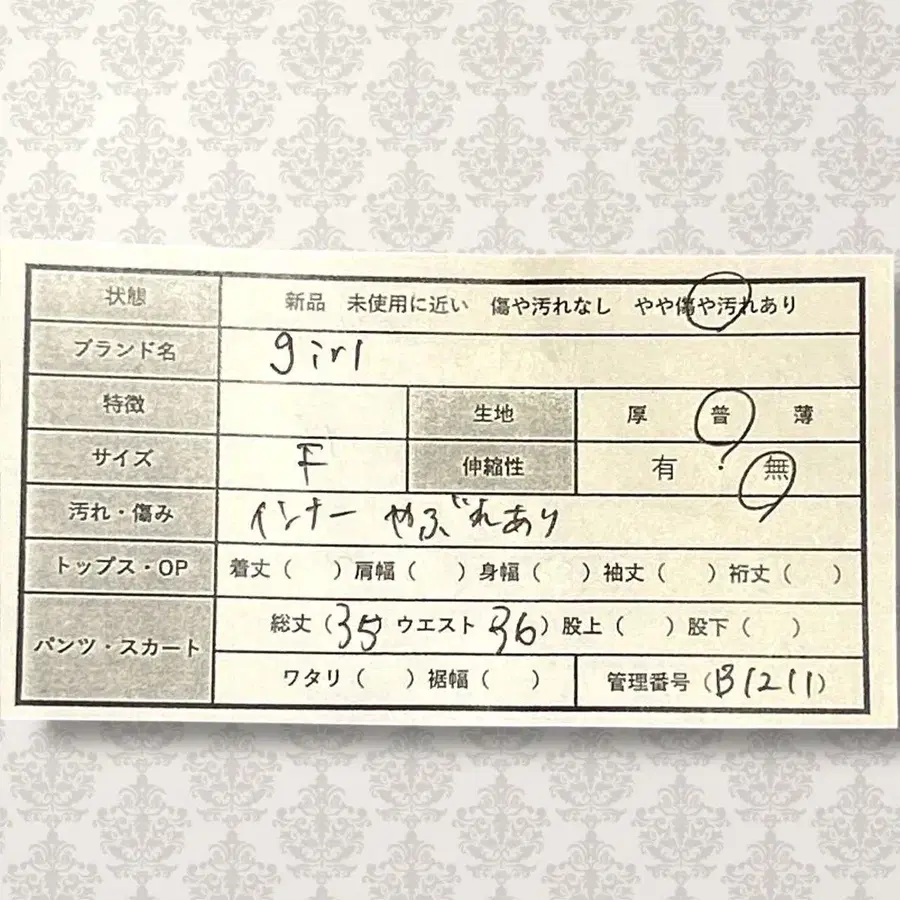 状態 新品 未使用に近い 傷や汚れなし やや傷や汚れあり
ブランド名 girl
特徴 生地 厚 普 薄
サイズ F 伸縮性 有 ・ 無
汚れ・傷み インナー やぶれあり
トップス・OP 着丈( ) 肩幅( ) 身幅( ) 袖丈( ) 裄丈( )
パンツ・スカート 総丈(35) ウエスト(36) 股上( ) 股下( )
ワタリ( ) 裾幅( ) 管理番号(B1211)